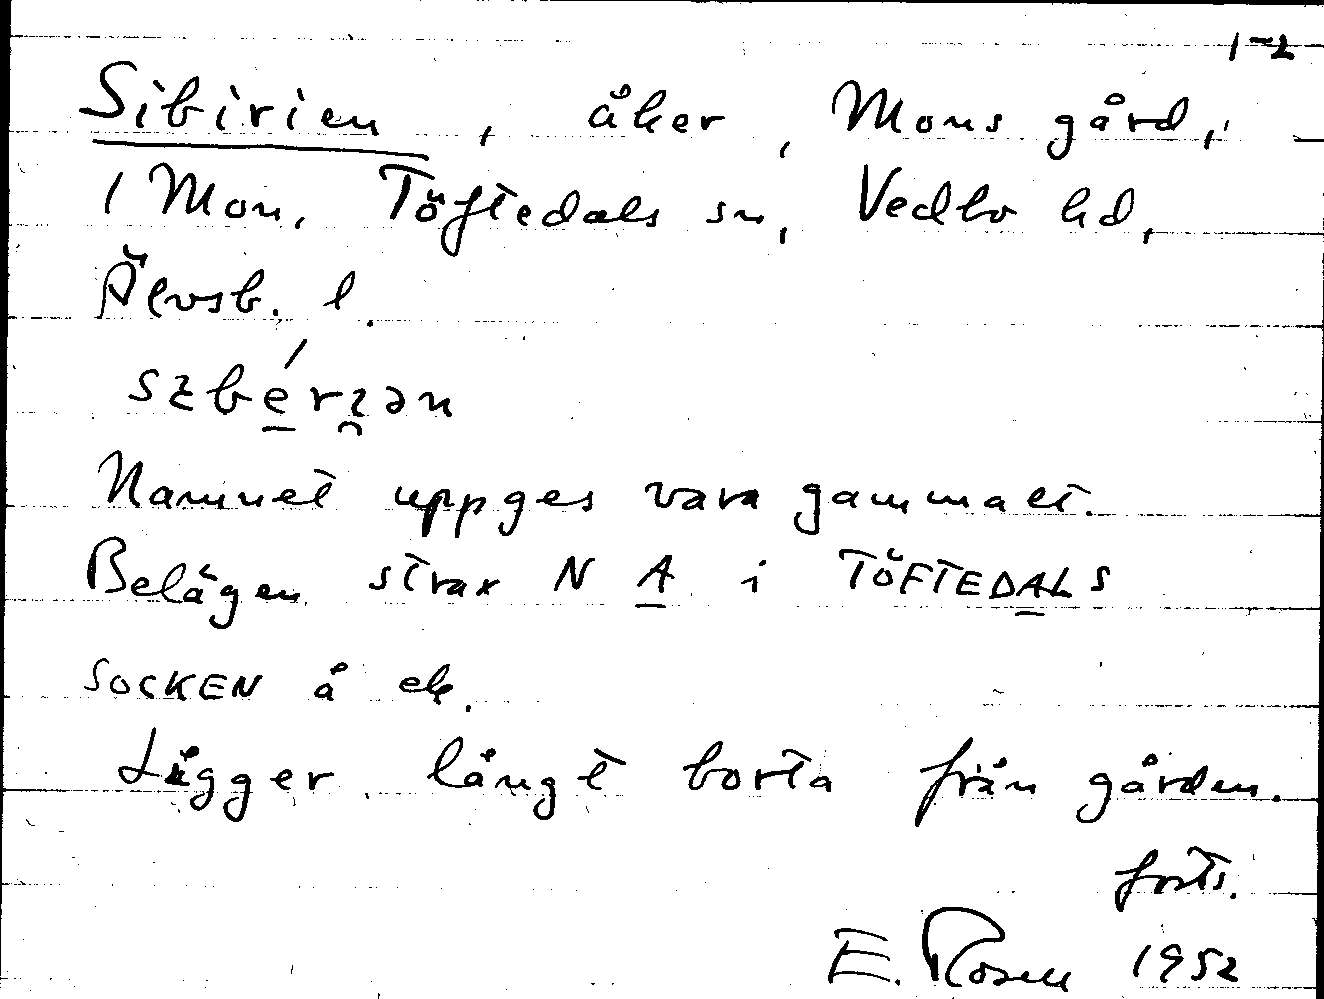 1-2
Sibirien, åker, Mons gård,
1 Mon, Töftedals sn, Vedbo hd,
Älvsb. l.
Namnet uppges vara gammalt.
Belägen strax N A i TÖFTEDALS
SOCKEN å ek.
Ligger långt borta från gården.
forts.
E. Rosell 1952